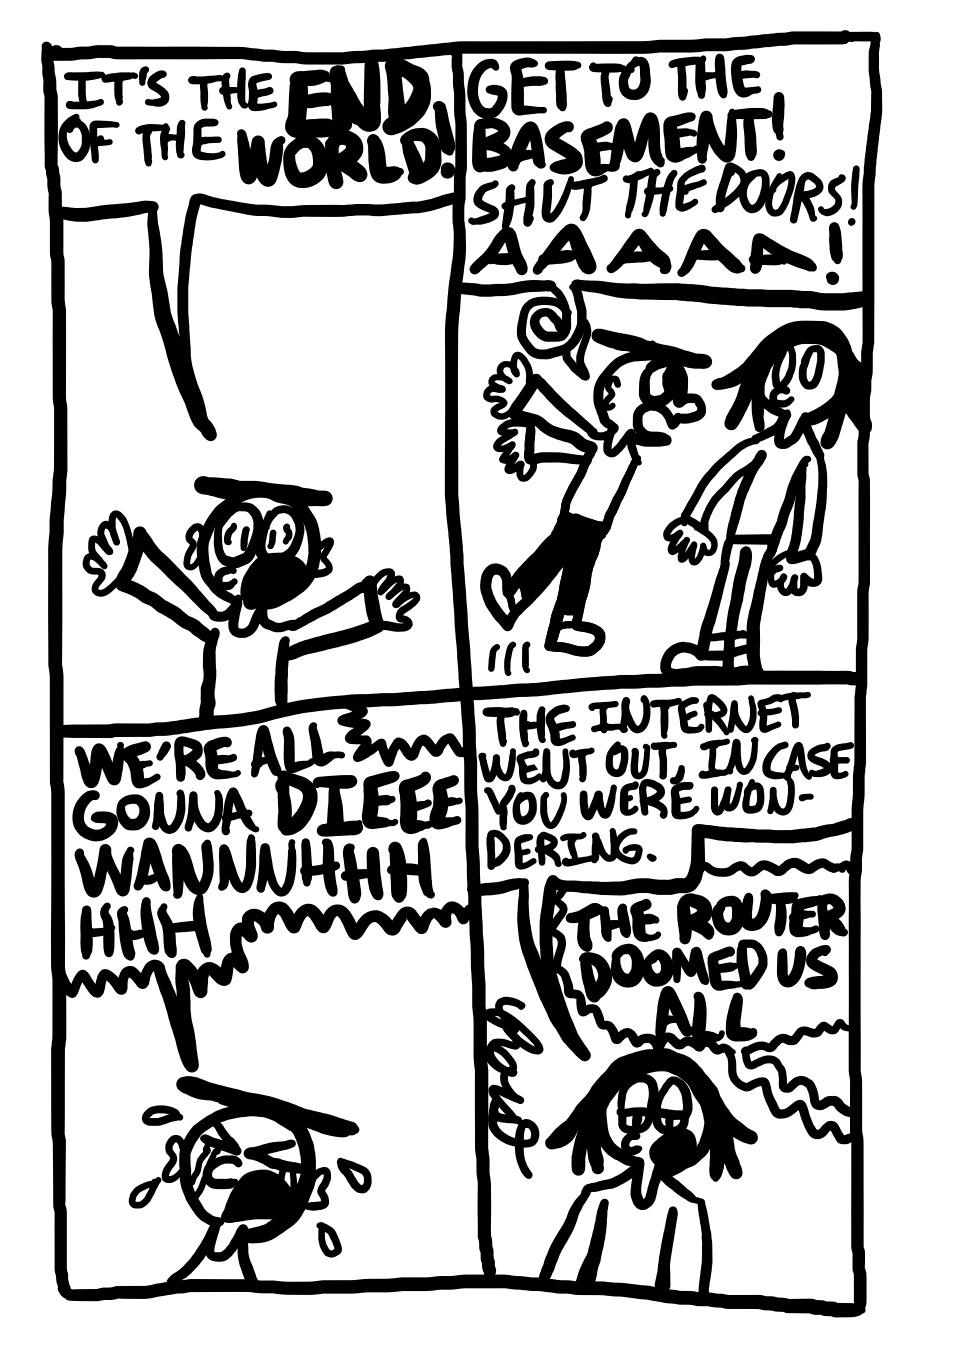 IT'S THE END
OF THE WORLD!
GET TO THE
BASEMENT!
SHUT THE DOORS!
AAAAA!
WE'RE ALL
GONNA DIEEE
WANNNHHH
HHH
THE INTERNET
WENT OUT, IN CASE
YOU WERE WON-
DERING.
THE ROUTER
DOOMED US
ALL